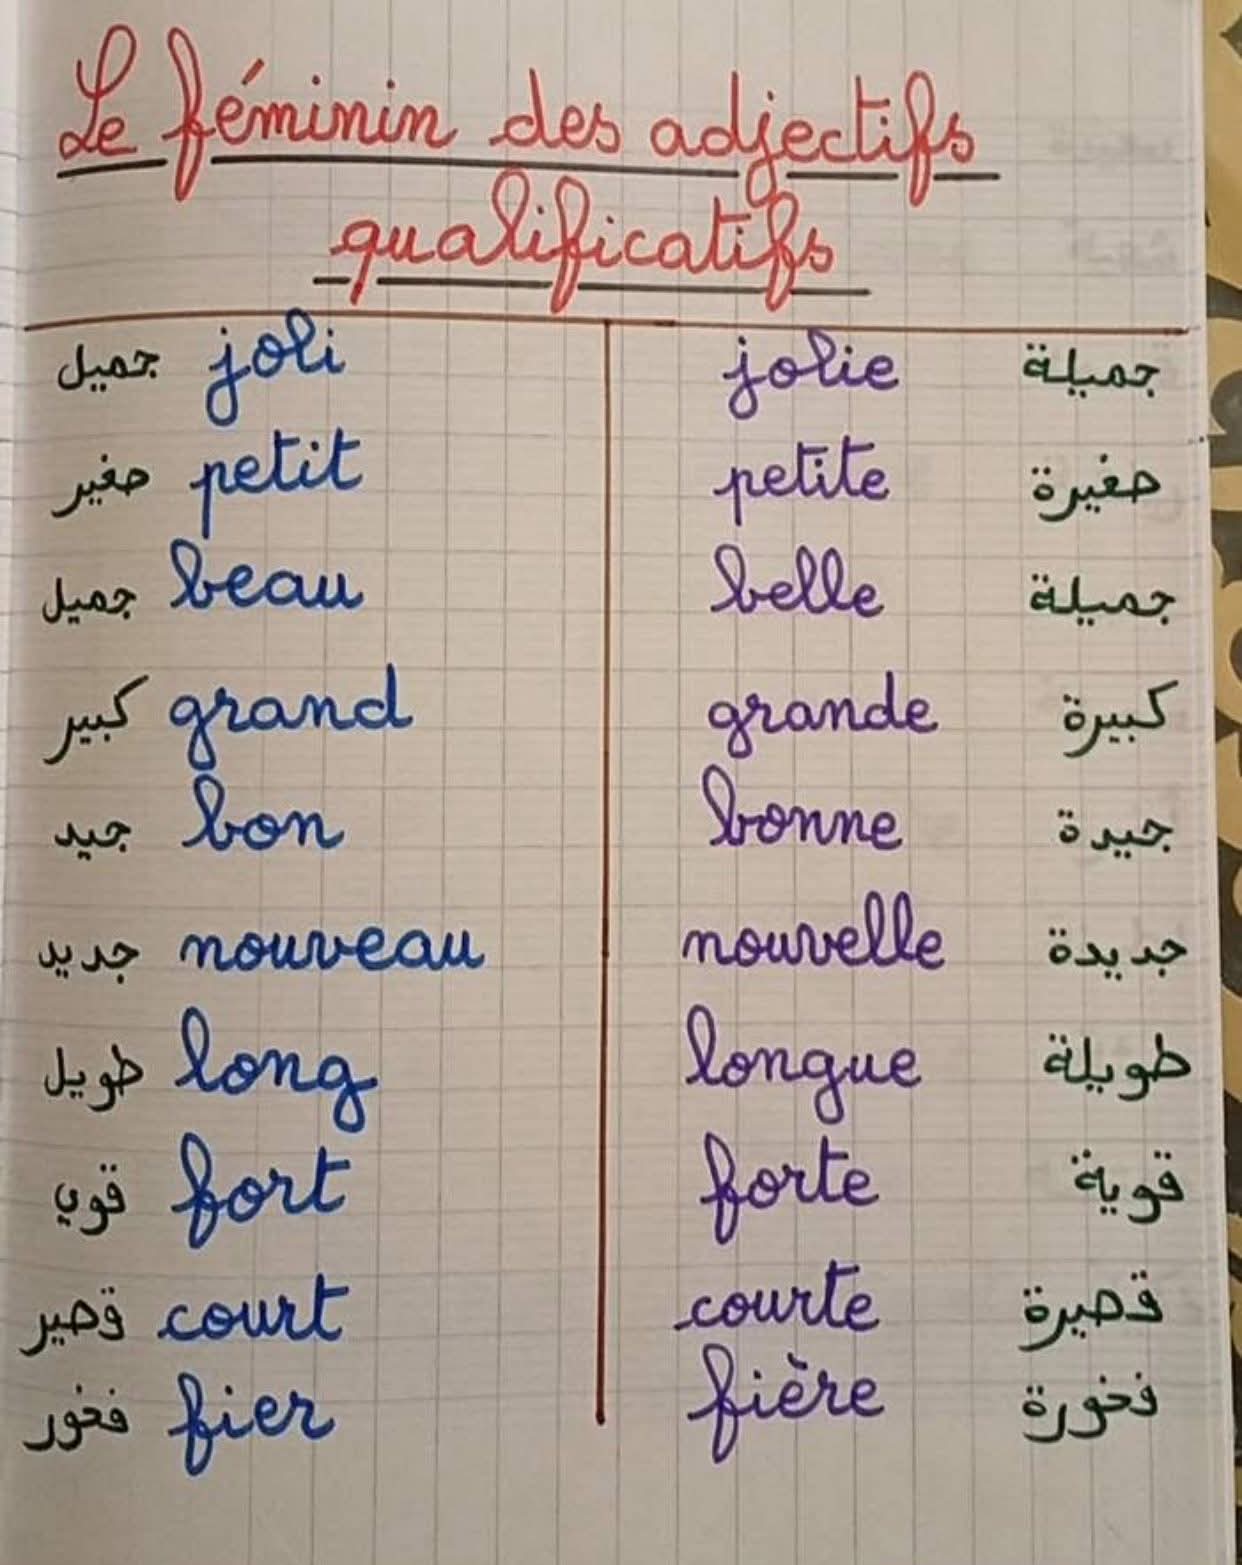 Le féminin des adjectifs
qualificatifs
جميل joli jolie جميلة
صغير petit petite صغيرة
جميل beau belle جميلة
كبير grand grande كبيرة
جيد bon bonne جيدة
جديد nouveau nouvelle جديدة
طويل long longue طويلة
قوي fort forte قوية
قصير court courte قصيرة
فخور fier fière فخورة